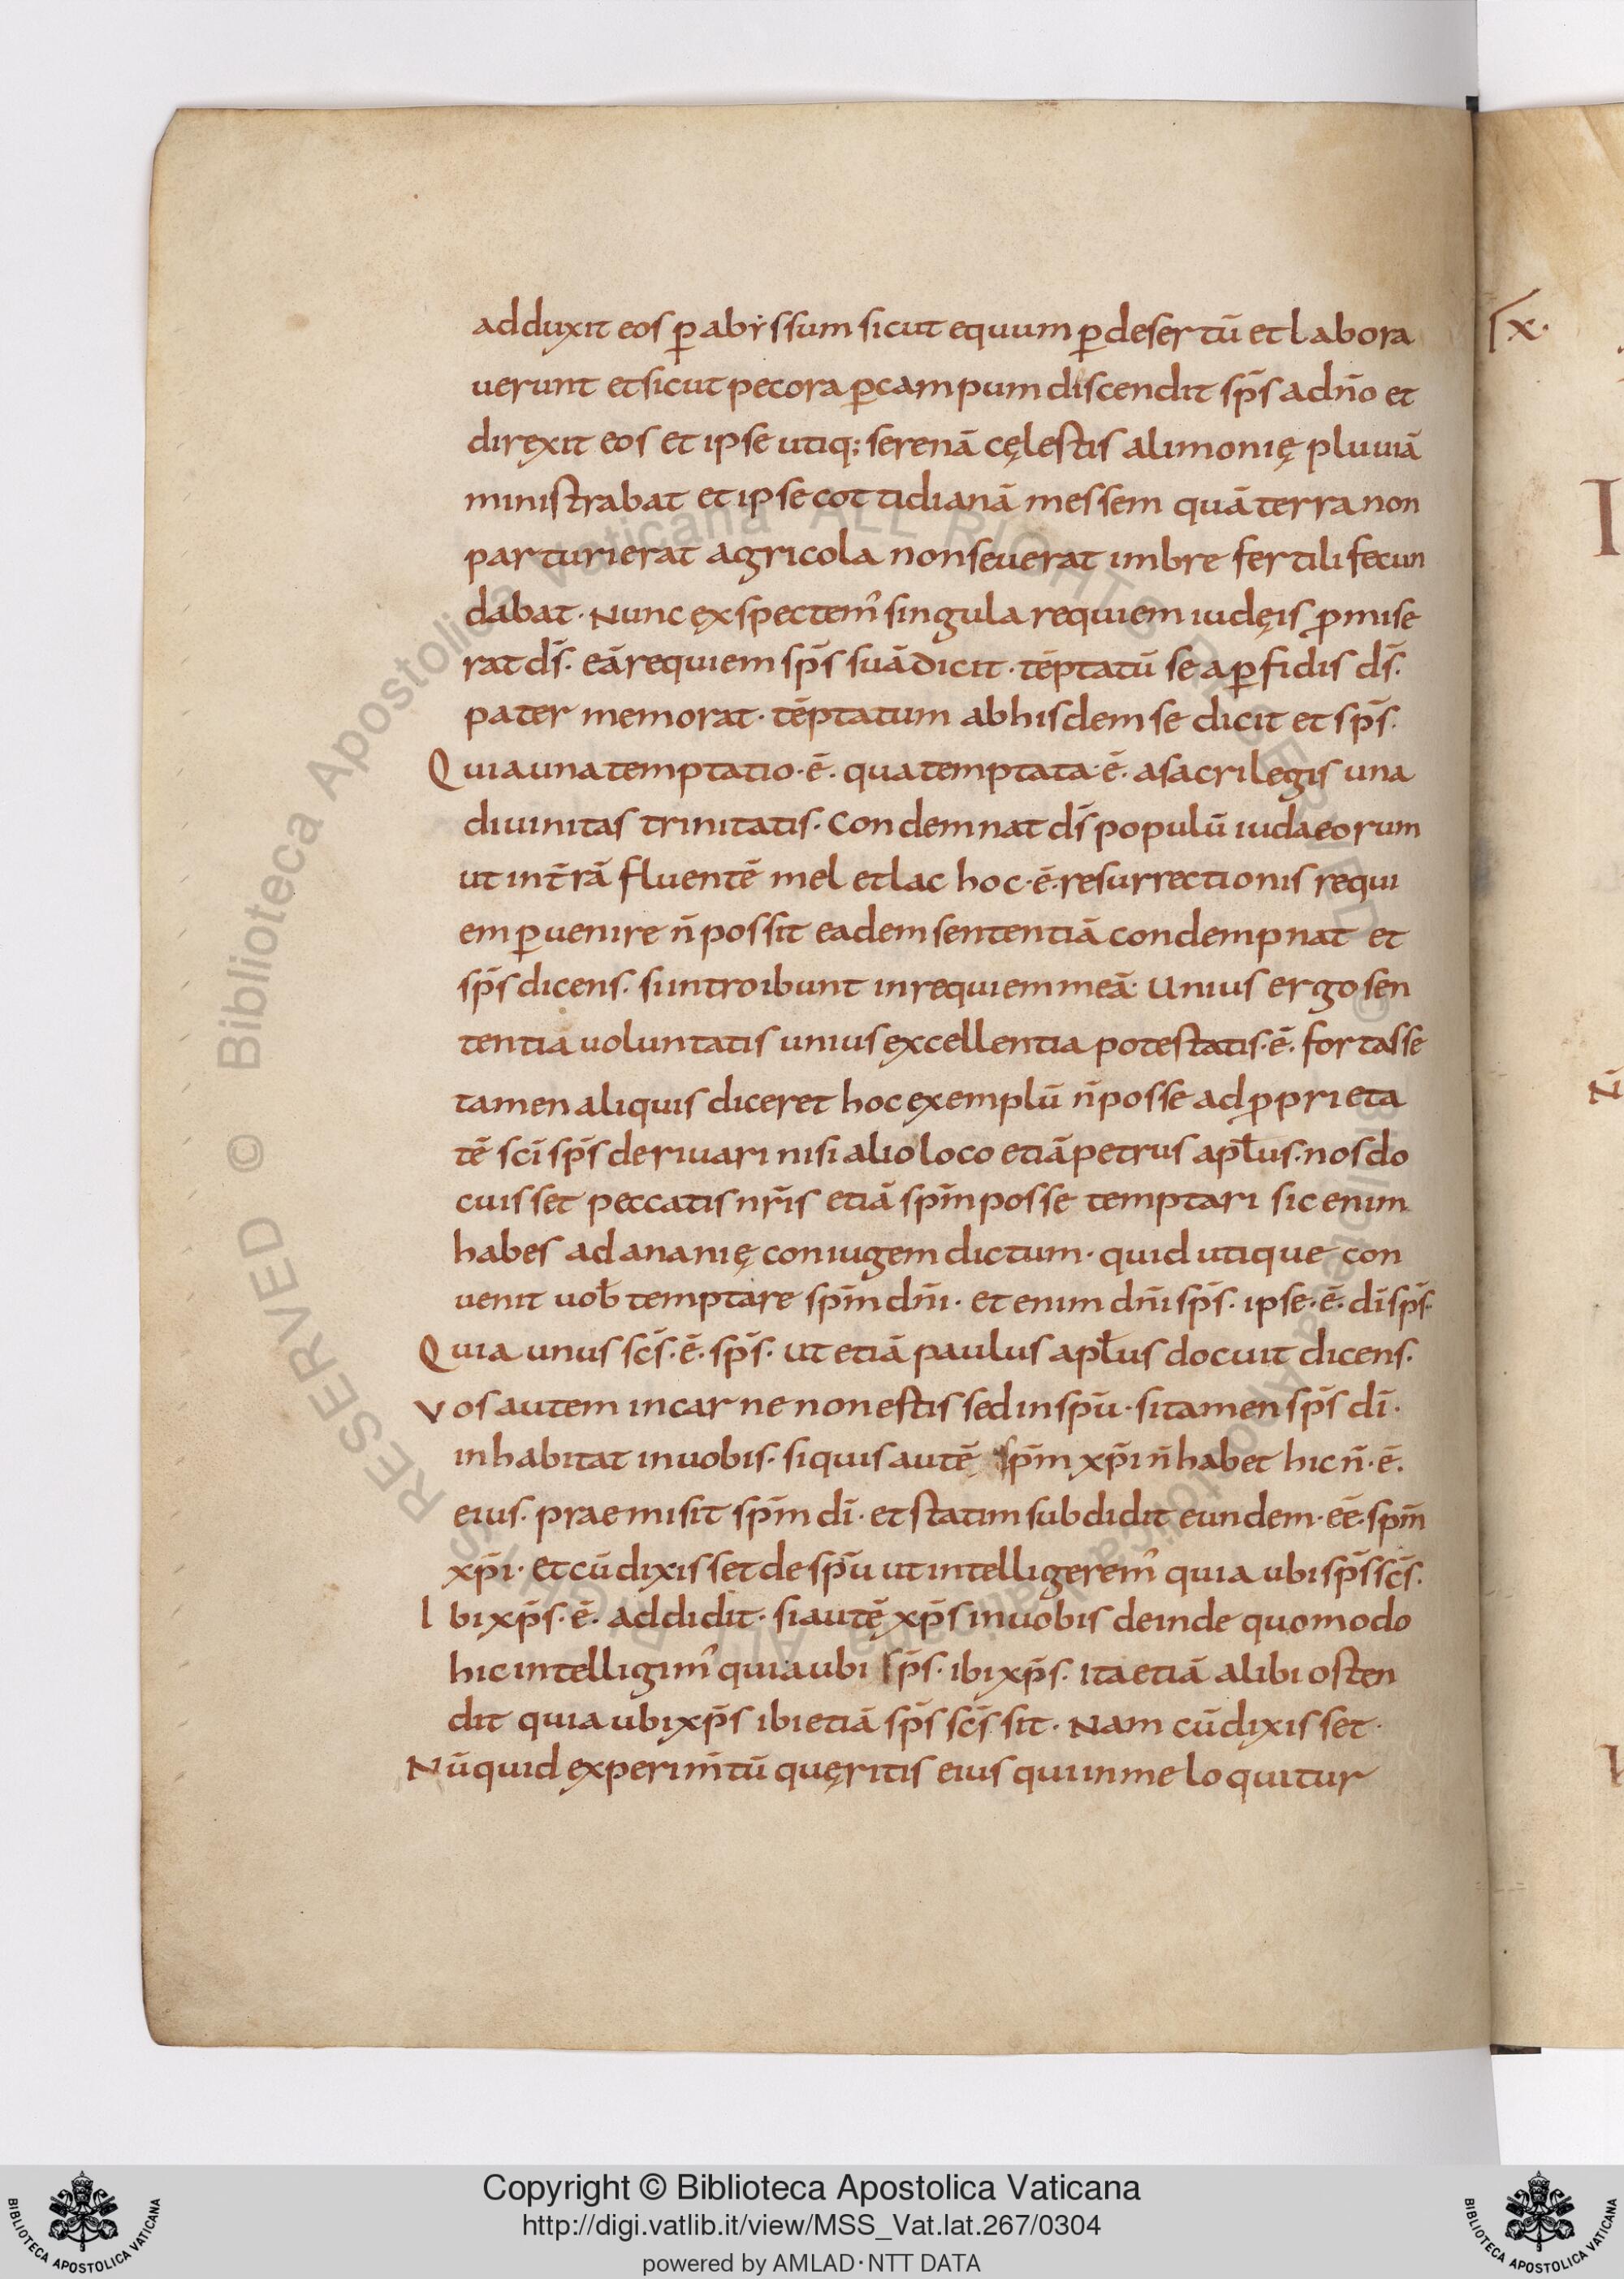 adduxit eos ꝑ abẏssum sicut equum ꝑ desertū et labora
uerunt et sicut pecora ꝑ campum discendit sp̄s a dn̄o et
direxit eos et ipse utiq; serenā cęlestis alimonię pluuiā
ministrabat et ipse cottidianā messem quā terra non
parturierat agricola non seuerat imbre fertili fecun
dabat · Nunc ęxspectem᾽ singula requiem iudęis ꝓmise
rat ds̄ · eā requiem sp̄s suā dicit · tēptatū se a ꝑfidis ds̄ ·
pater memorat · tēptatum ab hisdem se dicit et sp̄s ·
Quia una temptatio · ē · qua temptata · ē · a sacrilegis una
diuinitas trinitatis · Condemnat ds̄ populū iudaeorum
ut in tr̄ā fluentē mel et lac hoc · ē · resurrectionis requi
em ꝑuenire n̄ possit eadem sententiā condempnat et
sp̄s dicens · si introibunt in requiem meā · Unius ergo sen
tentia uoluntatis unius excellentia potestatis · ē · fortasse
tamen aliquis diceret hoc exemplū n̄ posse ad ꝓprieta
tē sc̄i sp̄s deriuari nisi alio loco etiā petrus apłus · nos do
cuisset peccatis nr̄is etiā sp̄m posse temptari sic enim
habes ad ananię coniugem dictum · quid utique con
uenit uob̄ temptare sp̄m dn̄i · et enim dn̄i sp̄s · ipse · ē · dī sp̄s ·
Quia unus sc̄s · ē · sp̄s · ut etiā paulus apłus docuit dicens ·
Vos autem in carne non estis sed in sp̄u · si tamen sp̄s dī ·
inhabitat in uobis · si quis autē sp̄m xp̄i n̄ habet hic n̄ · ē ·
eius · praemisit sp̄m dī · et statim subdidit eundem · ēē · sp̄m
xp̄i · Et cū dixisset de sp̄u ut intelligerem᾽ quia ubi sp̄s sc̄s ·
Ibi xp̄s · ē · addidit · si autē xp̄s in uobis deinde quomodo
hic intelligim᾽ quia ubi sp̄s · ibi xp̄s · ita etiā alibi osten
dit quia ubi xp̄s ibi etiā sp̄s sc̄s sit · Nam cū dixisset ·
Nūquid experim̄tū quęritis eius qui in me loquitur
x ·
I
N̄
Copyright © Biblioteca Apostolica Vaticana
http://digi.vatlib.it/view/MSS_Vat.lat.267/0304
powered by AMLAD · NTT DATA
BIBLIOTECA APOSTOLICA VATICANA
BIBLIOTECA APOSTOLICA VATICANA
© Biblioteca Apostolica Vaticana ALL RIGHTS RESERVED © Biblioteca Apostolica Vaticana ALL RIGHTS RESERVED